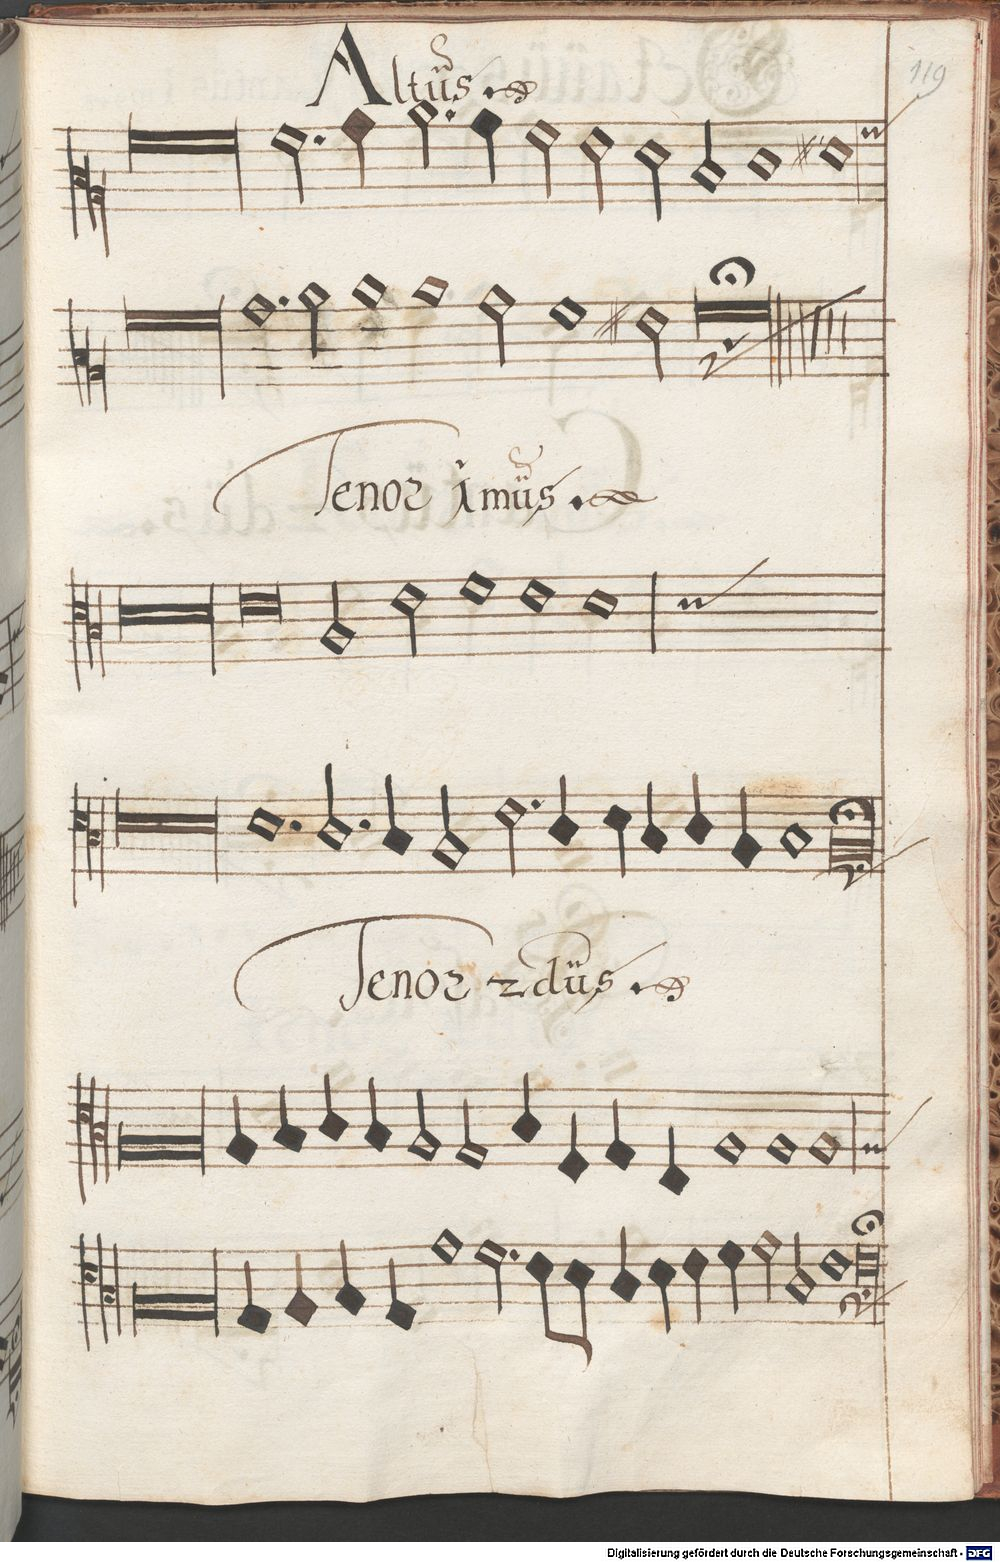 Altüs
119
Tenor 1müs
Tenor 2düs
Digitalisierung gefördert durch die Deutsche Forschungsgemeinschaft - DFG